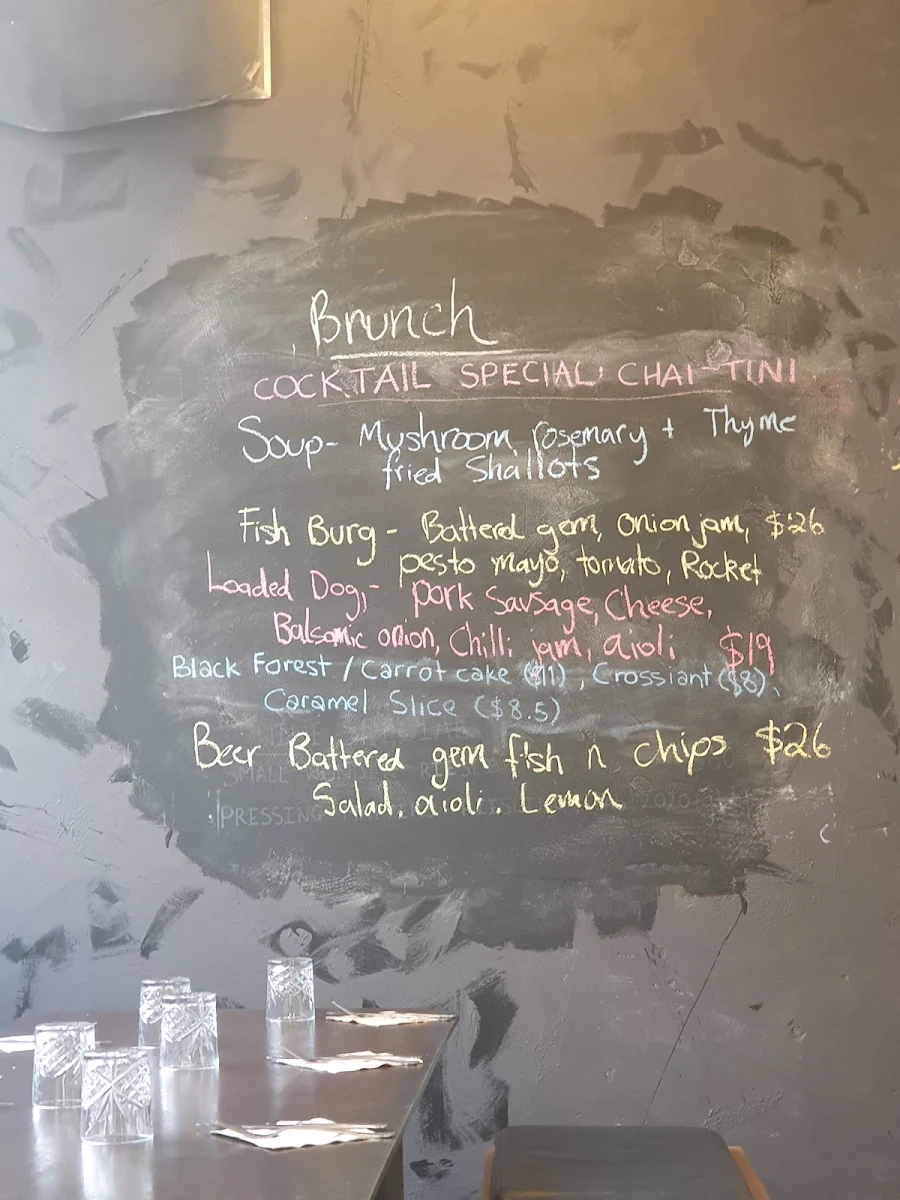 Brunch
COCKTAIL SPECIAL: CHAI-TINI
Soup- Mushroom, rosemary + Thyme
fried Shallots
Fish Burg - Battered gem, onion jam, $26
pesto mayo, tomato, Rocket
Loaded Dog,- pork Sausage, Cheese,
Balsamic onion, Chilli jam, aioli $19
Black Forest / Carrot cake ($11), Crossiant ($8),
Caramel Slice ($8.5)
Beer Battered gem fish n chips $26
Salad, aioli. Lemon
SMALL
PRESSING 2020